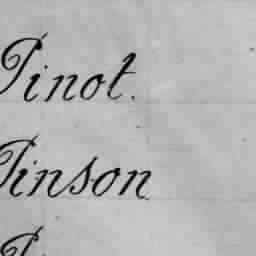 Pinot.
Pinson